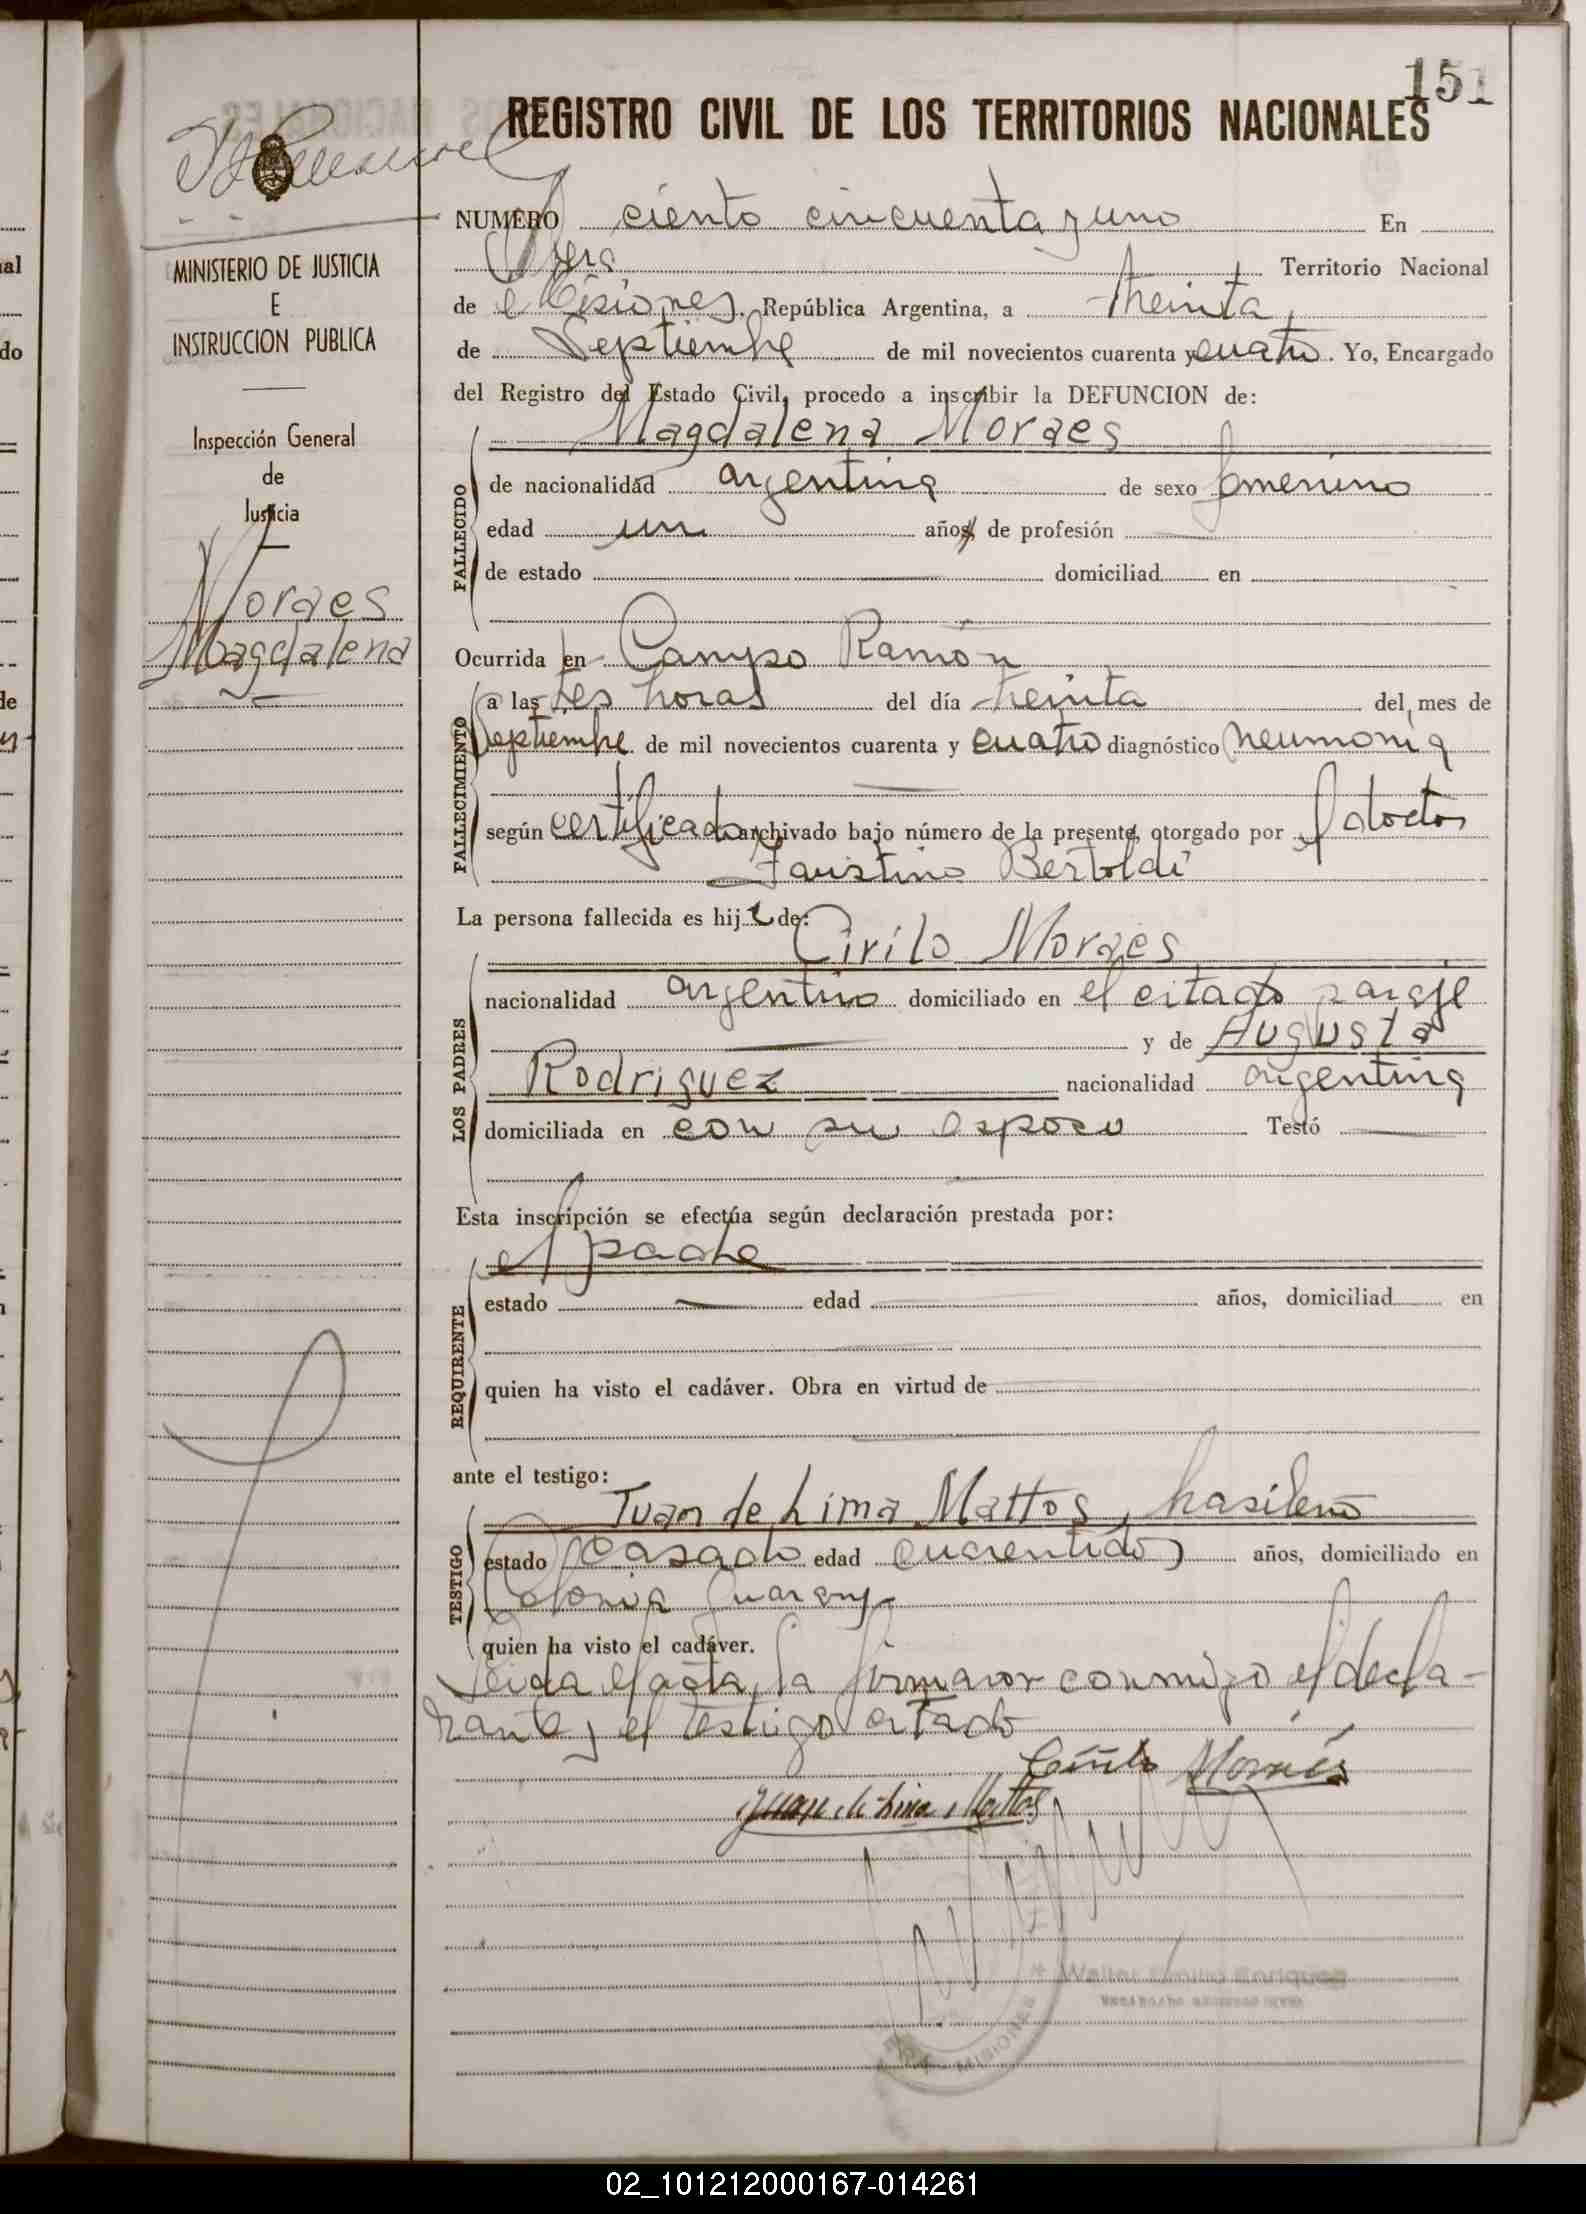 151
REGISTRO CIVIL DE LOS TERRITORIOS NACIONALES
NUMERO ciento cincuenta y uno En
Oberá Territorio Nacional
de Misiones, República Argentina, a treinta
de Septiembre de mil novecientos cuarenta y cuatro. Yo, Encargado
del Registro del Estado Civil, procedo a inscribir la DEFUNCION de:
Magdalena Moraes
FALLECIDO
de nacionalidad argentina de sexo femenino
edad un años, de profesión
de estado domiciliad en
Ocurrida en Campo Ramón
FALLECIMIENTO
a las tres horas del día treinta del mes de
Septiembre de mil novecientos cuarenta y cuatro diagnóstico neumonia
según certificado archivado bajo número de la presente, otorgado por el doctor
Faustino Bertoldi
La persona fallecida es hija de:
Cirilo Moraes
LOS PADRES
nacionalidad argentino domiciliado en el citado paraje
y de Augusta
Rodriguez nacionalidad argentina
domiciliada en con su esposo Testó
Esta inscripción se efectúa según declaración prestada por:
el padre
REQUIRENTE
estado edad años, domiciliad en
quien ha visto el cadáver. Obra en virtud de
ante el testigo:
Juan de Lima Mattos, brasileño
TESTIGO
estado casado edad cuarentidos años, domiciliado en
Colonia Guarany
quien ha visto el cadáver.
Leida el acta, la firmaron conmigo el decla-
rante y el testigo citado
Cirilo Moraes
Juan de Lima Mattos
MISIONES
MINISTERIO DE JUSTICIA
E
INSTRUCCION PUBLICA
Inspección General
de
Justicia
Moraes
Magdalena
02_101212000167-014261